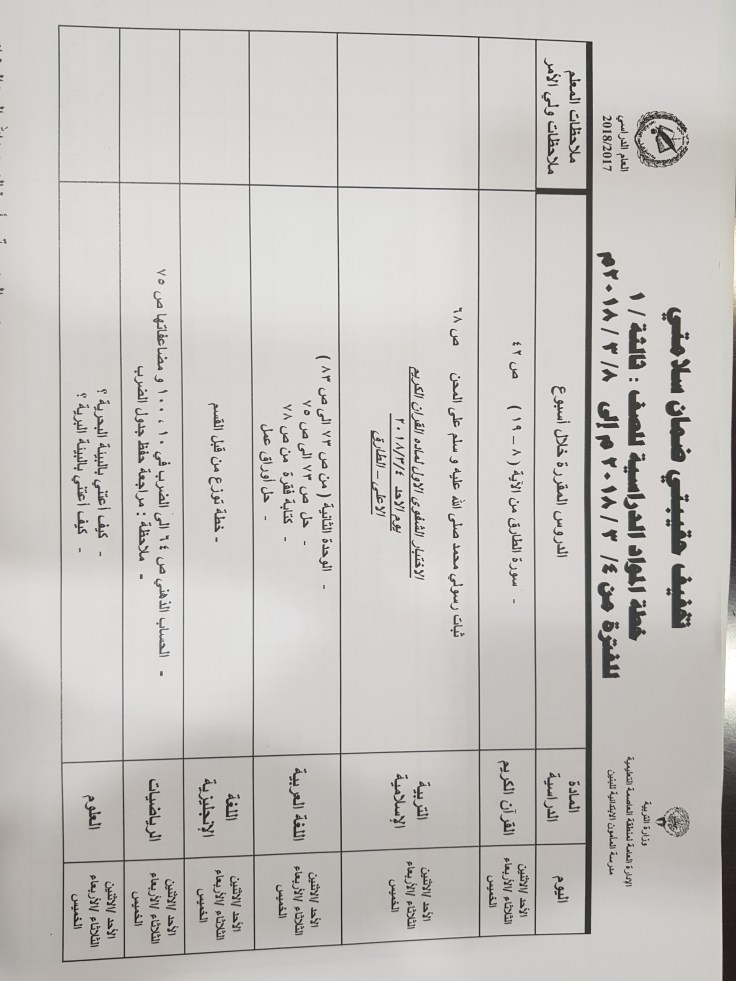 وزارة التربية
الإدارة العامة لمنطقة العاصمة التعليمية
مدرسة المأمون الابتدائية للبنين
العام الدراسي
2018/2017
تخفيف حقيبتي ضمان سلامتي
خطة المواد الدراسية للصف : ثالثة / ١
للفترة من ٤ / ٣ / ٢٠١٨ م إلى ٨ / ٣ / ٢٠١٨ م
اليوم
المادة الدراسية
الدروس المقررة خلال أسبوع
ملاحظات المعلم
ملاحظات ولي الأمر
الأحد /الاثنين
الثلاثاء /الأربعاء
الخميس
القرآن الكريم
- سورة الطارق من الآية ( ٨ – ١٩ ) ص ٤٢
الأحد /الاثنين
الثلاثاء /الأربعاء
الخميس
التربية
الإسلامية
ثبات رسولي محمد صلى الله عليه و سلم على المحن ص ٦٨
الاختبار الشفوي الاول لماده القران الكريم
يوم الاحد ٢٠١٨/٣/٤
الاعلى – الطارق
الأحد /الاثنين
الثلاثاء /الأربعاء
الخميس
اللغة العربية
- الوحدة الثانية ( من ص ٧٣ الى ص ٨٣ )
- حل ص ٧٣ الى ص ٧٥
- كتابة فقرة من ص ٧٨
- حل أوراق عمل
الأحد /الاثنين
الثلاثاء /الأربعاء
الخميس
اللغة
الإنجليزية
- خطة توزع من قبل القسم
الأحد /الاثنين
الثلاثاء /الأربعاء
الخميس
الرياضيات
- الحساب الذهني ص ٦٤ الى الضرب في ١٠ ، ١٠٠ و مضاعفاتها ص ٧٥
- ملاحظة : مراجعة حفظ جدول الضرب
الأحد /الاثنين
الثلاثاء /الأربعاء
الخميس
العلوم
- كيف أعتني بالبيئة البحرية ؟
- كيف أعتني بالبيئة البرية ؟